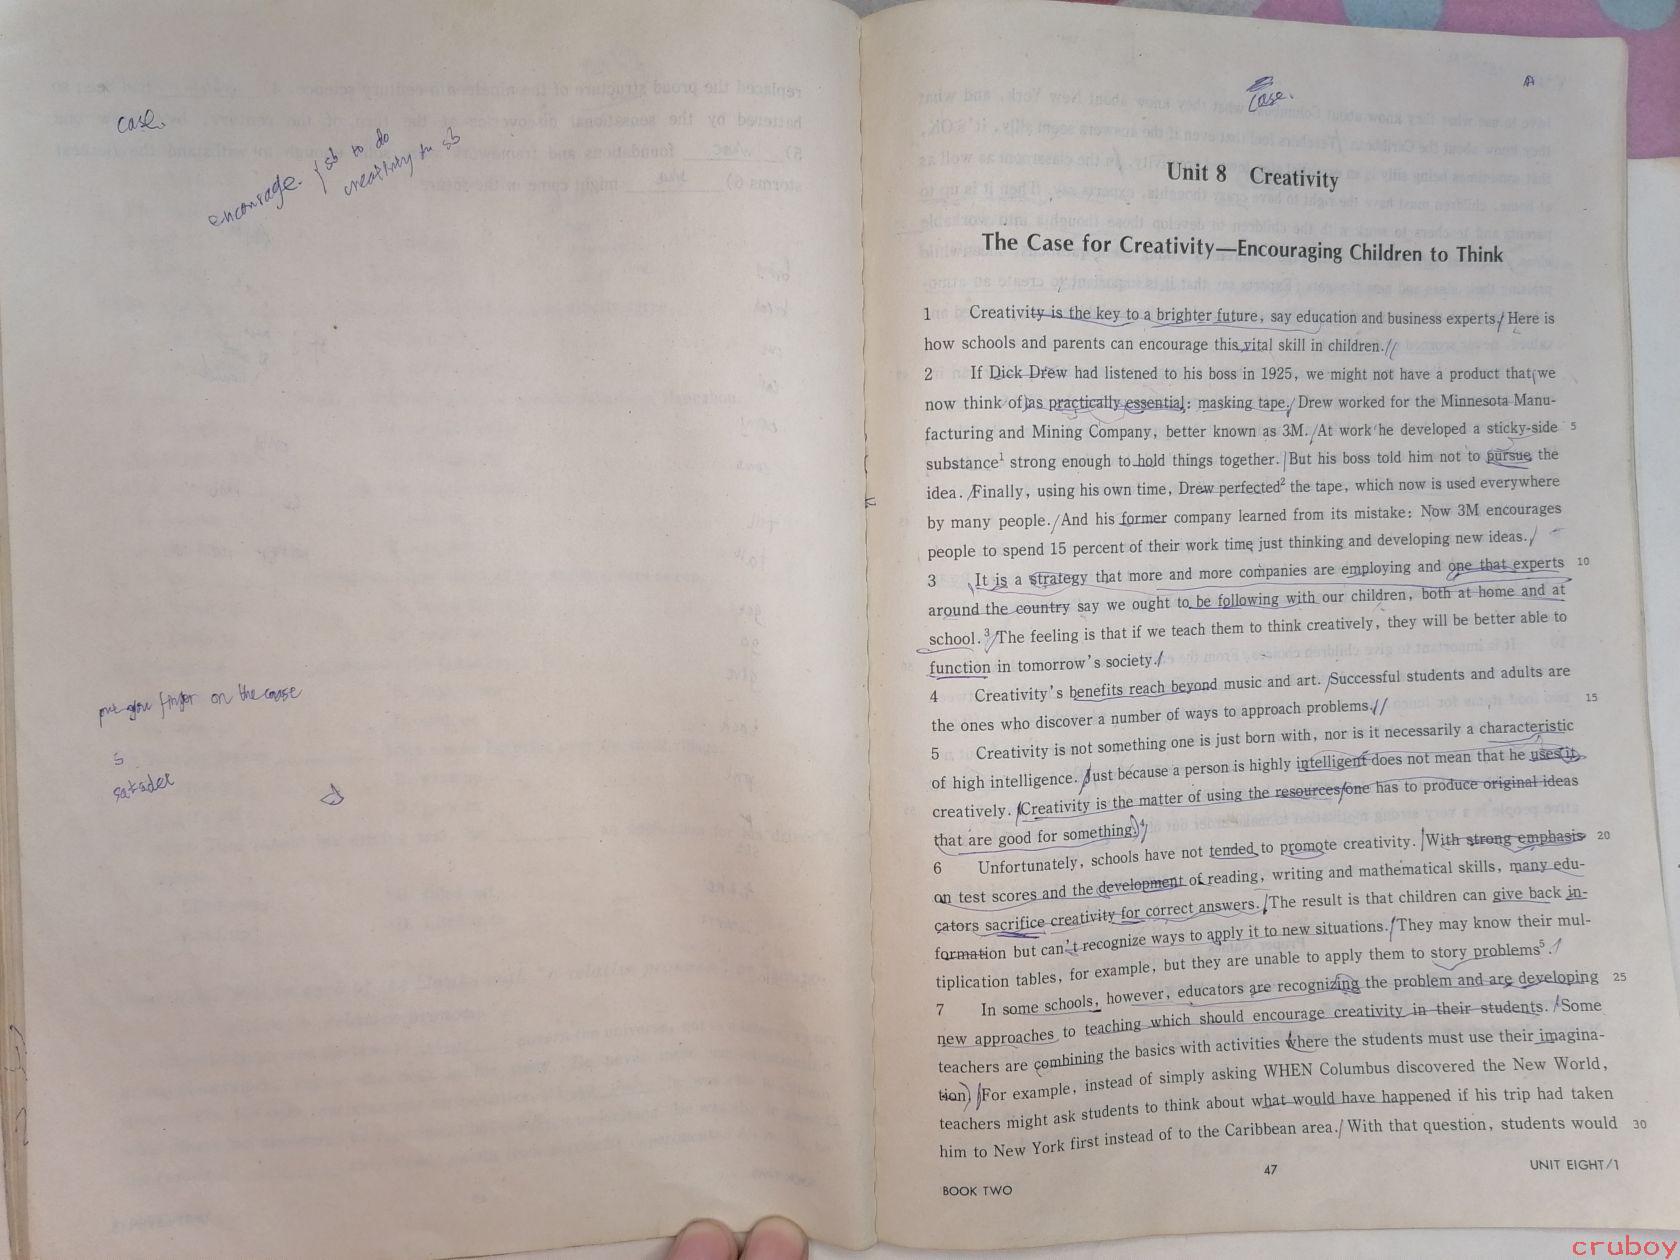 case.
encourage. { sb to do
creativity in sb
on the
Case.
Unit 8 Creativity
The Case for Creativity—Encouraging Children to Think
1 Creativity is the key to a brighter future, say education and business experts. Here is
how schools and parents can encourage this vital skill in children.
2 If Dick Drew had listened to his boss in 1925, we might not have a product that we
now think of as practically essential: masking tape. Drew worked for the Minnesota Manu-
facturing and Mining Company, better known as 3M. At work he developed a sticky-side 5
substance1 strong enough to hold things together. But his boss told him not to pursue the
idea. Finally, using his own time, Drew perfected2 the tape, which now is used everywhere
by many people. And his former company learned from its mistake: Now 3M encourages
people to spend 15 percent of their work time just thinking and developing new ideas.
3 It is a strategy that more and more companies are employing and one that experts 10
around the country say we ought to be following with our children, both at home and at
school.3 The feeling is that if we teach them to think creatively, they will be better able to
function in tomorrow's society.
4 Creativity's benefits reach beyond music and art. Successful students and adults are
the ones who discover a number of ways to approach problems. 15
5 Creativity is not something one is just born with, nor is it necessarily a characteristic
of high intelligence. Just because a person is highly intelligent does not mean that he uses it
creatively. Creativity is the matter of using the resources one has to produce original ideas
that are good for something.4
6 Unfortunately, schools have not tended to promote creativity. With strong emphasis 20
on test scores and the development of reading, writing and mathematical skills, many edu-
cators sacrifice creativity for correct answers. The result is that children can give back in-
formation but can't recognize ways to apply it to new situations. They may know their mul-
tiplication tables, for example, but they are unable to apply them to story problems5.
7 In some schools, however, educators are recognizing the problem and are developing 25
new approaches to teaching which should encourage creativity in their students. Some
teachers are combining the basics with activities where the students must use their imagina-
tion. For example, instead of simply asking WHEN Columbus discovered the New World,
teachers might ask students to think about what would have happened if his trip had taken
him to New York first instead of to the Caribbean area. With that question, students would 30
47
UNIT EIGHT/1
BOOK TWO
cruboy